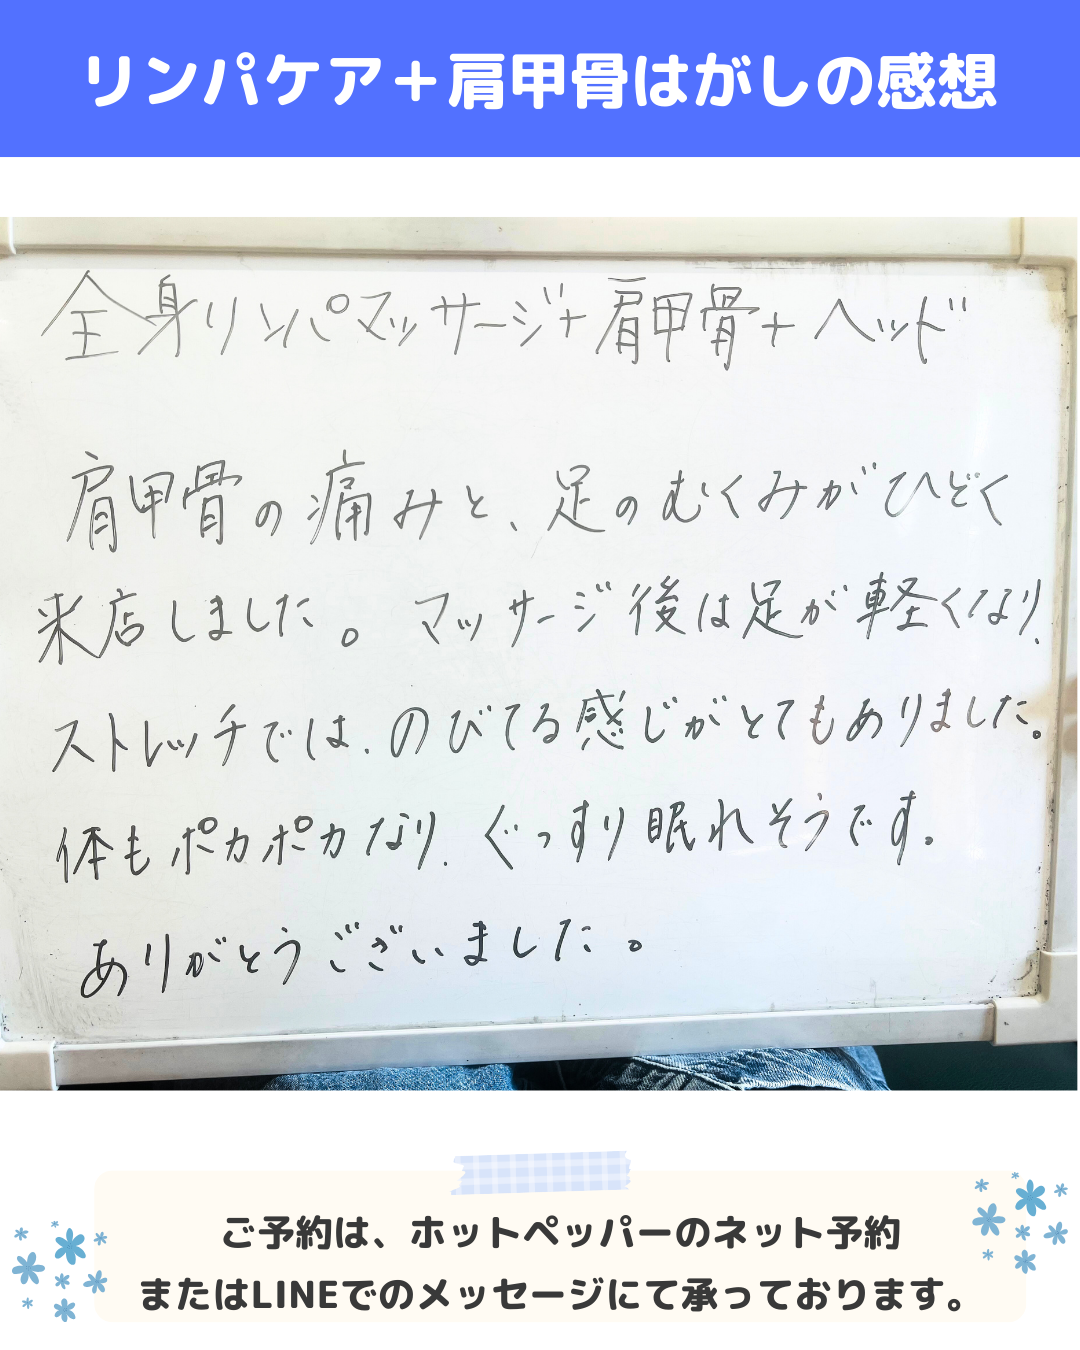 リンパケア＋肩甲骨はがしの感想
全身リンパマッサージ+肩甲骨+ヘッド
肩甲骨の痛みと、足のむくみがひどく
来店しました。マッサージ後は足が軽くなり、
ストレッチでは、のびてる感じがとてもありました。
体もポカポカなり、ぐっすり眠れそうです。
ありがとうございました。
ご予約は、ホットペッパーのネット予約
またはLINEでのメッセージにて承っております。